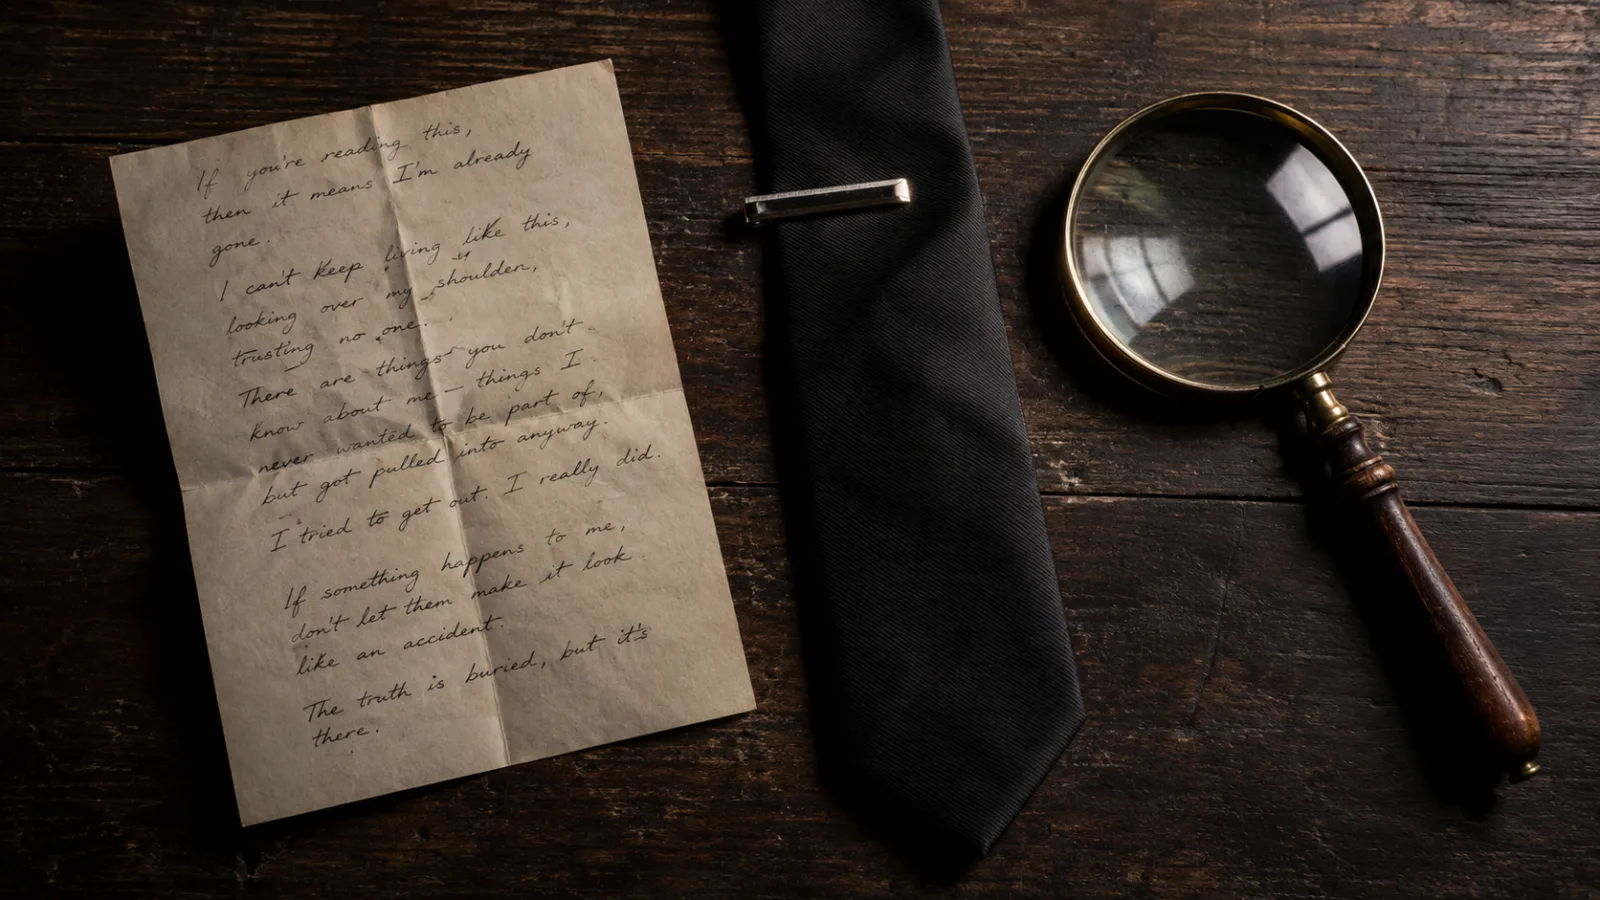 If you're reading this,
then it means I'm already
gone.
I can't keep living like this,
looking over my shoulder,
trusting no one.
There are things you don't
know about me — things I
never wanted to be part of,
but got pulled into anyway.
I tried to get out. I really did.
If something happens to me,
don't let them make it look
like an accident.
The truth is buried, but it's
there.